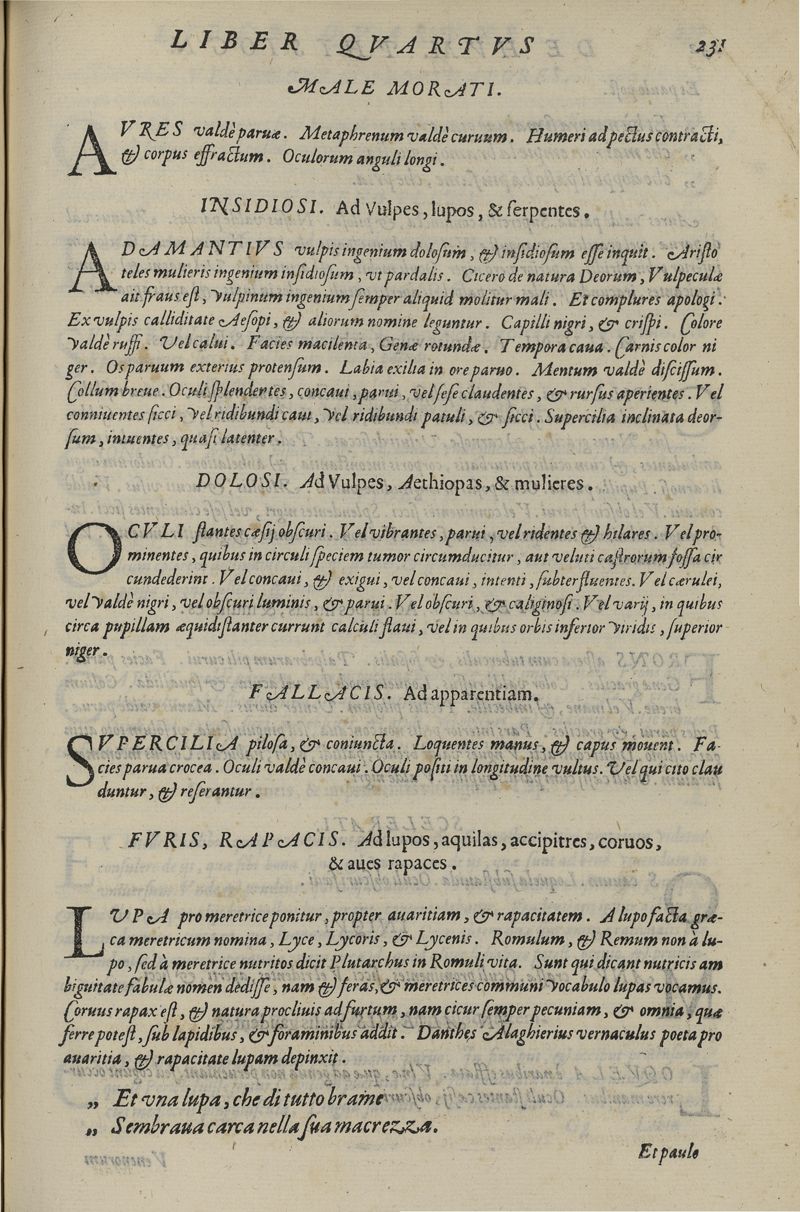 LIBER QVARTVS 231
MALE MORATI.
AVRES valdè paruæ. Metaphrenum valdè curuum. Humeri ad pectus contracti,
& corpus effractum. Oculorum anguli longi.
INSIDIOSI. Ad Vulpes, lupos, & ſerpentes.
ADAMANTIVS vulpis ingenium doloſum, & inſidioſum eſſe inquit. Ariſto
teles mulieris ingenium inſidioſum, vt pardalis. Cicero de natura Deorum, Vulpeculæ
ait fraus eſt, vulpinum ingenium ſemper aliquid molitur mali. Et complures apologi.
Ex vulpis calliditate Aeſopi, & aliorum nomine leguntur. Capilli nigri, & criſpi. Colore
valdè ruffi. Vel calui. Facies macilenta, Genæ rotundæ. Tempora caua. Carnis color ni
ger. Os paruum exterius protenſum. Labia exilia in ore paruo. Mentum valdè diſciſſum.
Collum breue. Oculi ſplendentes, concaui, parui, vel ſeſe claudentes, & rurſus aperientes. Vel
conniuentes ſicci, vel ridibundi caui, vel ridibundi patuli, & ſicci. Supercilia inclinata deor-
ſum, intuentes, quaſi latenter.
DOLOSI. Ad Vulpes, Aethiopas, & mulieres.
OCVLI ſlantes cæſij obſcuri. Vel vibrantes, parui, vel ridentes & hilares. Vel pro-
minentes, quibus in circuli ſpeciem tumor circumducitur, aut veluti caſtrorum foſſa cir
cundederint. Vel concaui, & exigui, vel concaui, intenti, ſubterfluentes. Vel cærulei,
vel valdè nigri, vel obſcuri luminis, & parui. Vel obſcuri, & caliginoſi. Vel varij, in quibus
circa pupillam æquidiſtanter currunt calculi flaui, vel in quibus orbis inferior viridis, ſuperior
niger.
FALLACIS. Ad apparentiam.
SVPERCILIA piloſa, & coniuncta. Loquentes manus, & capus mouent. Fa-
cies parua crocea. Oculi valdè concaui. Oculi poſiti in longitudine vultus. Vel qui cito clau
duntur, & reſerantur.
FVRIS, RAPACIS. Ad lupos, aquilas, accipitres, coruos,
& aues rapaces.
LVPA pro meretrice ponitur, propter auaritiam, & rapacitatem. A lupo facta græ-
ca meretricum nomina, Lyce, Lycoris, & Lycenis. Romulum, & Remum non à lu-
po, ſed à meretrice nutritos dicit Plutarchus in Romuli vita. Sunt qui dicant nutricis am
biguitate fabulæ nomen dediſſe, nam & feras, & meretrices communi vocabulo lupas vocamus.
Coruus rapax eſt, & natura procliuis ad furtum, nam cicur ſemper pecuniam, & omnia, quæ
ferre poteſt, ſub lapidibus, & foraminibus addit. Danthes Alaghierius vernaculus poeta pro
auaritia, & rapacitate lupam depinxit.
„ Et vna lupa, che di tutto brame
„ Sembraua carca nella ſua macrezza.
Et paulo